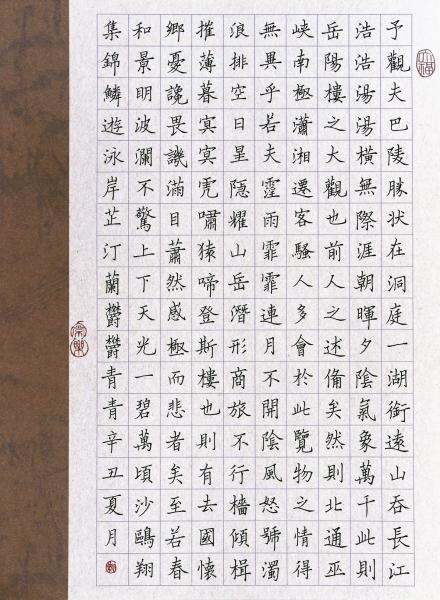 予觀夫巴陵勝状在洞庭一湖銜遠山吞長江
浩浩湯湯橫無際涯朝暉夕陰氣象萬千此則
岳陽樓之大觀也前人之述俻矣然則北通巫
峽南極瀟湘遷客騷人多會於此覽物之情得
無異乎若夫霪雨霏霏連月不開陰風怒號濁
浪排空日星隱耀山岳潛形商旅不行檣傾楫
摧薄暮冥冥虎嘯猿啼登斯樓也則有去國懷
鄉憂讒畏譏滿目蕭然感極而悲者矣至若春
和景明波瀾不驚上下天光一碧萬頃沙鷗翔
集錦鱗遊泳岸芷汀蘭鬱鬱青青辛丑夏月